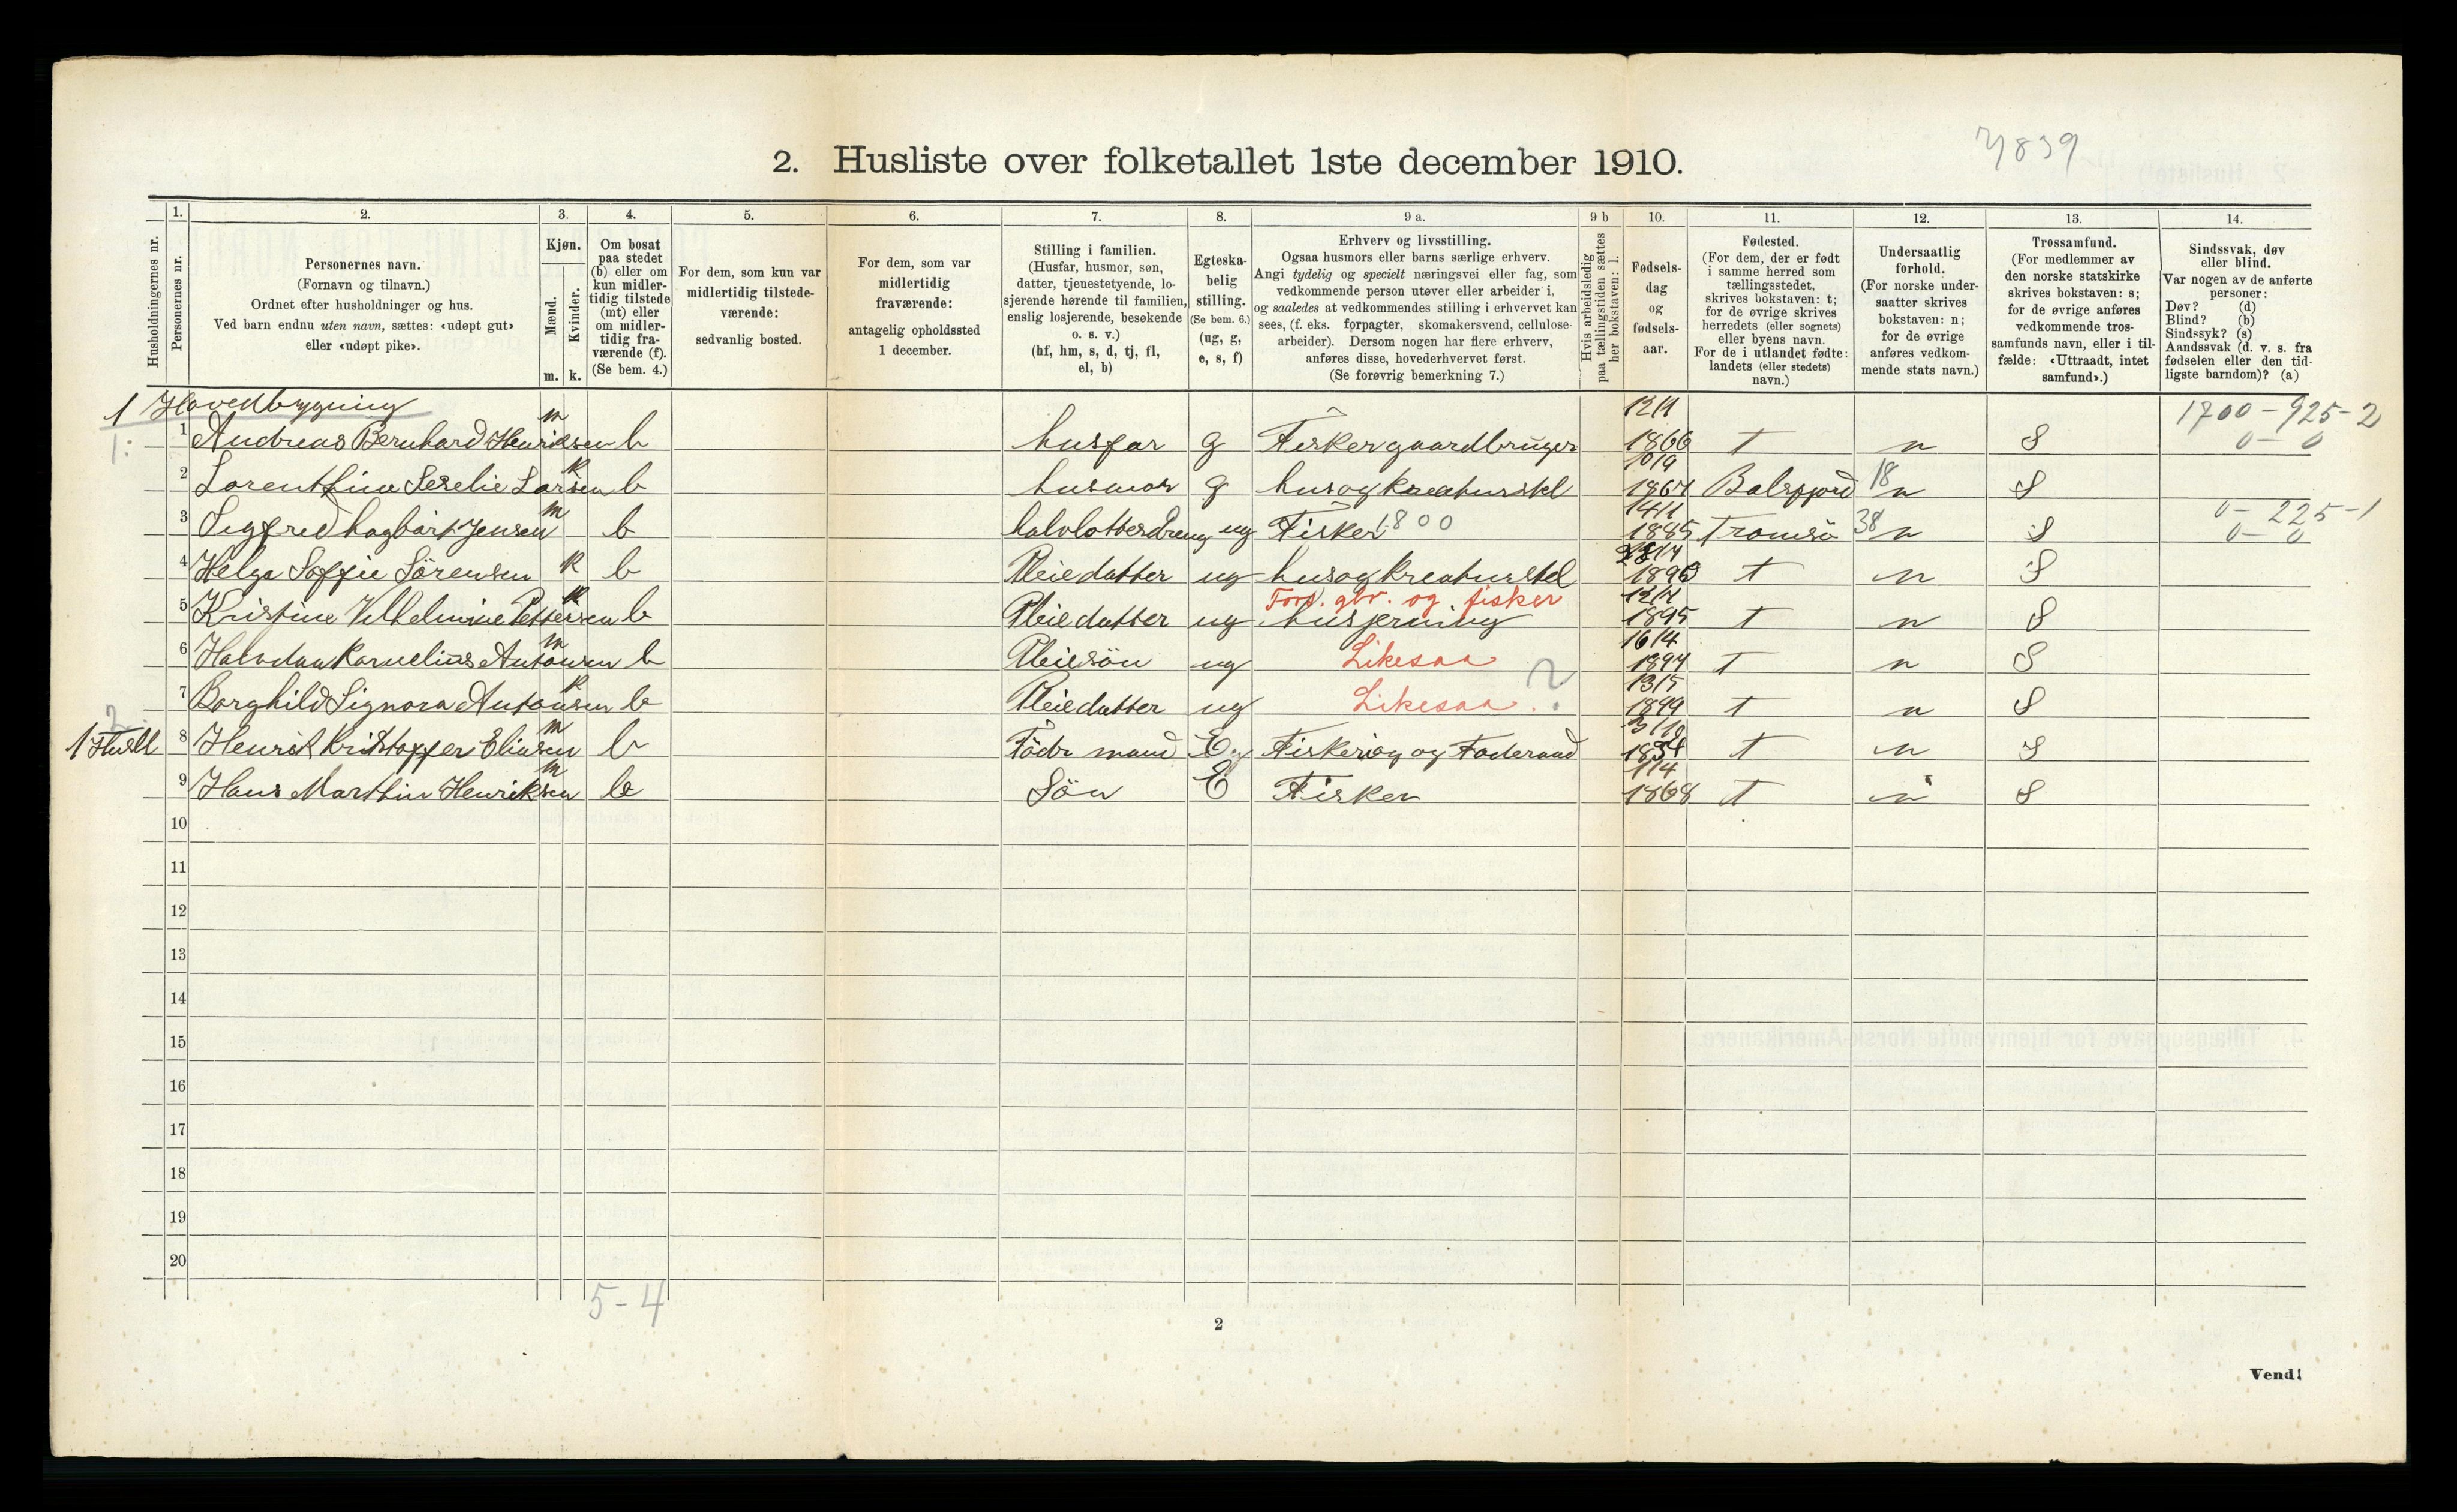 7839
2. Husliste over folketallet 1ste december 1910.
1. 2. 3. 4. 5. 6. 7. 8. 9 a. 9 b 10. 11. 12. 13. 14.
Husholdningernes nr.
Personernes nr.
Personernes navn.
(Fornavn og tilnavn.)
Ordnet efter husholdninger og hus.
Ved barn endnu uten navn, sættes: «udøpt gut»
eller «udøpt pike».
Kjøn.
Mænd.
Kvinder.
m. k.
Om bosat
paa stedet
(b) eller om
kun midler-
tidig tilstede
(mt) eller
om midler-
tidig fra-
værende (f).
(Se bem. 4.)
For dem, som kun var
midlertidig tilstede-
værende:
sedvanlig bosted.
For dem, som var
midlertidig
fraværende:
antagelig opholdssted
1 december.
Stilling i familien.
(Husfar, husmor, søn,
datter, tjenestetyende, lo-
sjerende hørende til familien,
enslig losjerende, besøkende
o. s. v.)
(hf, hm, s, d, tj, fl,
el, b)
Egteska-
belig
stilling.
(Se bem. 6.)
(ug, g,
e, s, f)
Erhverv og livsstilling.
Ogsaa husmors eller barns særlige erhverv.
Angi tydelig og specielt næringsvei eller fag, som
vedkommende person utøver eller arbeider i,
og saaledes at vedkommendes stilling i erhvervet kan
sees, (f. eks. forpagter, skomakersvend, cellulose-
arbeider). Dersom nogen har flere erhverv,
anføres disse, hovederhvervet først.
(Se forøvrig bemerkning 7.)
Hvis arbeidsledig
paa tællingstiden sættes
her bokstaven: l.
Fødsels-
dag
og
fødsels-
aar.
Fødested.
(For dem, der er født
i samme herred som
tællingsstedet,
skrives bokstaven: t;
for de øvrige skrives
herredets (eller sognets)
eller byens navn.
For de i utlandet fødte:
landets (eller stedets)
navn.)
Undersaatlig
forhold.
(For norske under-
saatter skrives
bokstaven: n;
for de øvrige
anføres vedkom-
mende stats navn.)
Trossamfund.
(For medlemmer av
den norske statskirke
skrives bokstaven: s;
for de øvrige anføres
vedkommende tros-
samfunds navn, eller i til-
fælde: «Uttraadt, intet
samfund».)
Sindssvak, døv
eller blind.
Var nogen av de anførte
personer:
Døv? (d)
Blind? (b)
Sindssyk? (s)
Aandssvak (d. v. s. fra
fødselen eller den tid-
ligste barndom)? (a)
1 Hovedbygning 12/1 1700-925-2
1: 1 Andreas Bernhard Henriksen m b husfar g Fisker gaardbruger 1866 t n S 0-0
10/9
2 Lorenthine Serelie Larsen k b husmor g hus og kreaturstel 1867 Balsfjord 18 n S
14/1 0-225-1
3 Sigfred hagbart Jensen m b halvlottesdreng ug Fisker 1800 1885 Tromsö 38 n S 0-0
4 Helga Soffie Sörensen k b Pleiedatter ug hus og kreaturstel t n S
Fors. gbr. og fisker 12/4
5 Kristine Vilhelmine Pettersen k b Pleiedatter ug husjerning 1895 t n S
16/4
6 Halvdan Kornelius Antonsen m b Pleiesön ug Likesaa 1894 t n S
13/5
7 Borghild Signora Antonsen k b Pleiedatter ug Likesaa ? 1899 t n S
2. 3/10
8 Henrik Kristoffer Eliasen m b Födr mand E Fiskeri og Foderaad t n S
1/4
9 Hans Marthin Henriksen m b Sön E Fisker 1868 t n S
10
11
12
13
14
15
16
17
18
19
20
5-4
2
Vend!